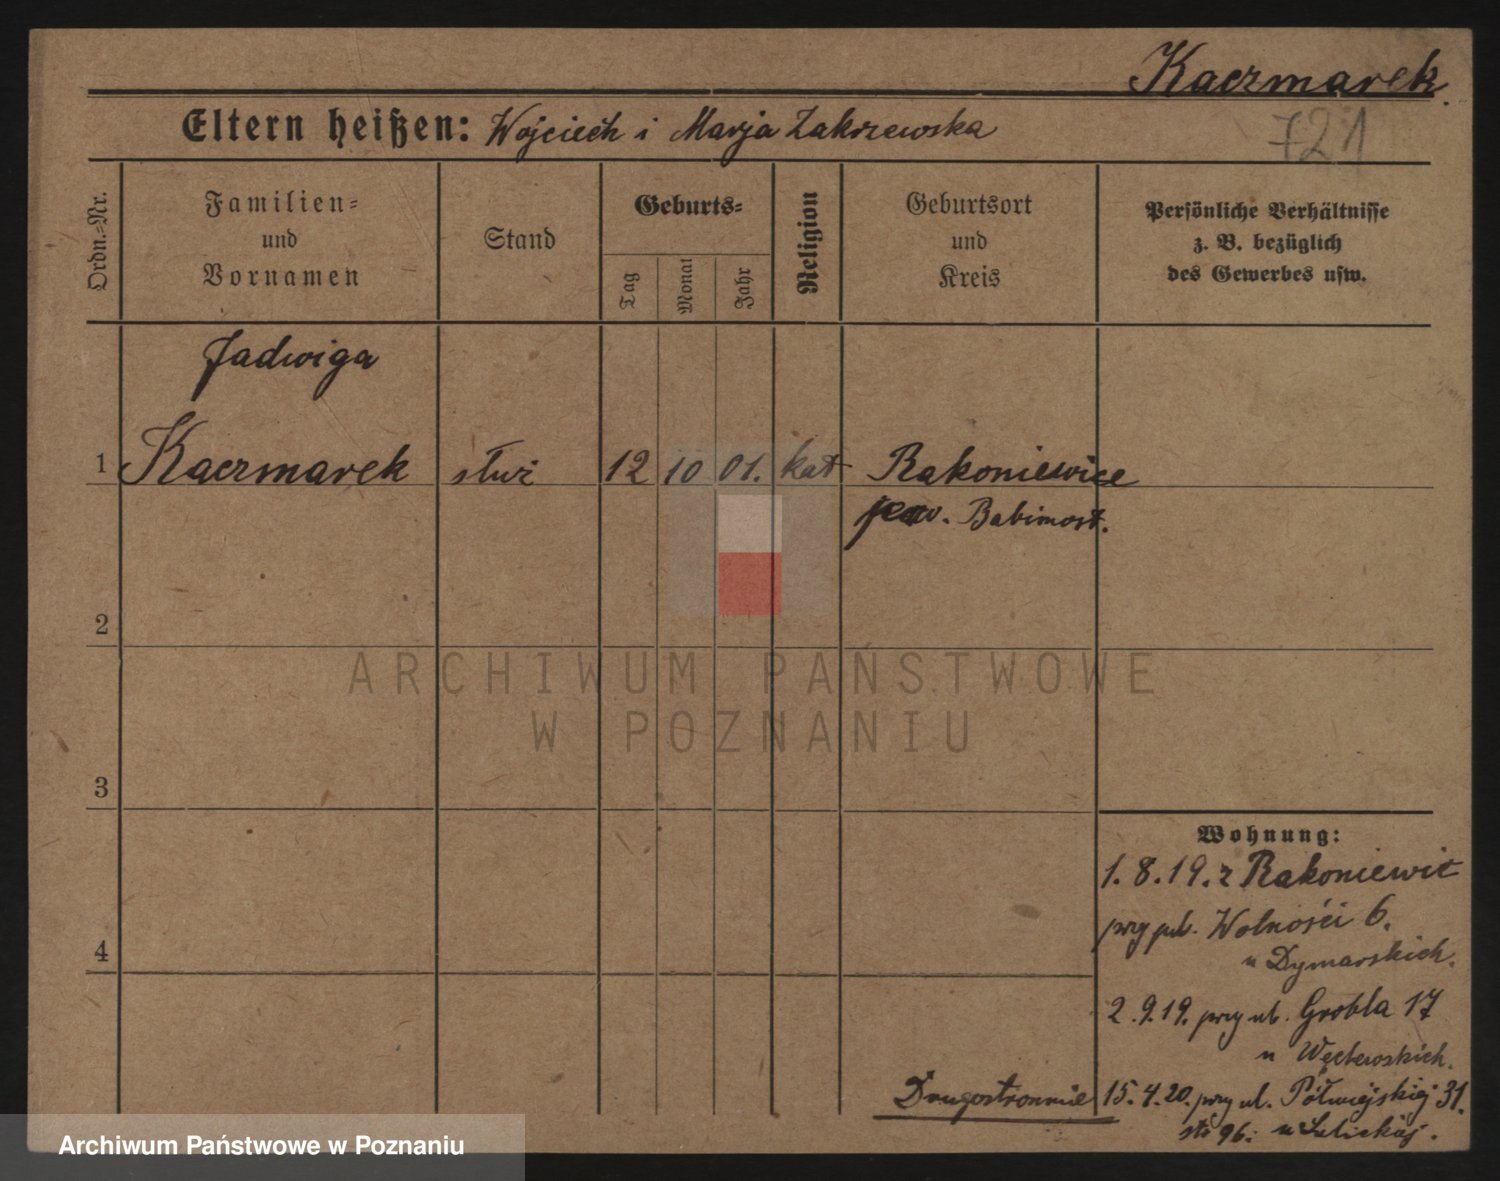 Kaczmarek.
721
Eltern heißen: Wojciech i Marja Zakrzewska
Ordn.-Nr.
Familien- und Vornamen
Stand
Geburts-
Tag
Monat
Jahr
Religion
Geburtsort und Kreis
Persönliche Verhältnisse
z. B. bezüglich
des Gewerbes usw.
Jadwiga
1 Kaczmarek służ 12 10 01. kat Rakoniewice
pow. Babimost.
2
3
4
Wohnung:
1. 8. 19. z Rakoniewic
przy pl. Wolnośći 6.
u Dymarskich.
2. 9. 19. przy ul. Grobla 17
u
Drugostronnie 15. 4. 20. przy ul. Półwiejskiej 31.
96. u
ARCHIWUM PAŃSTWOWE
W POZNANIU
Archiwum Państwowe w Poznaniu